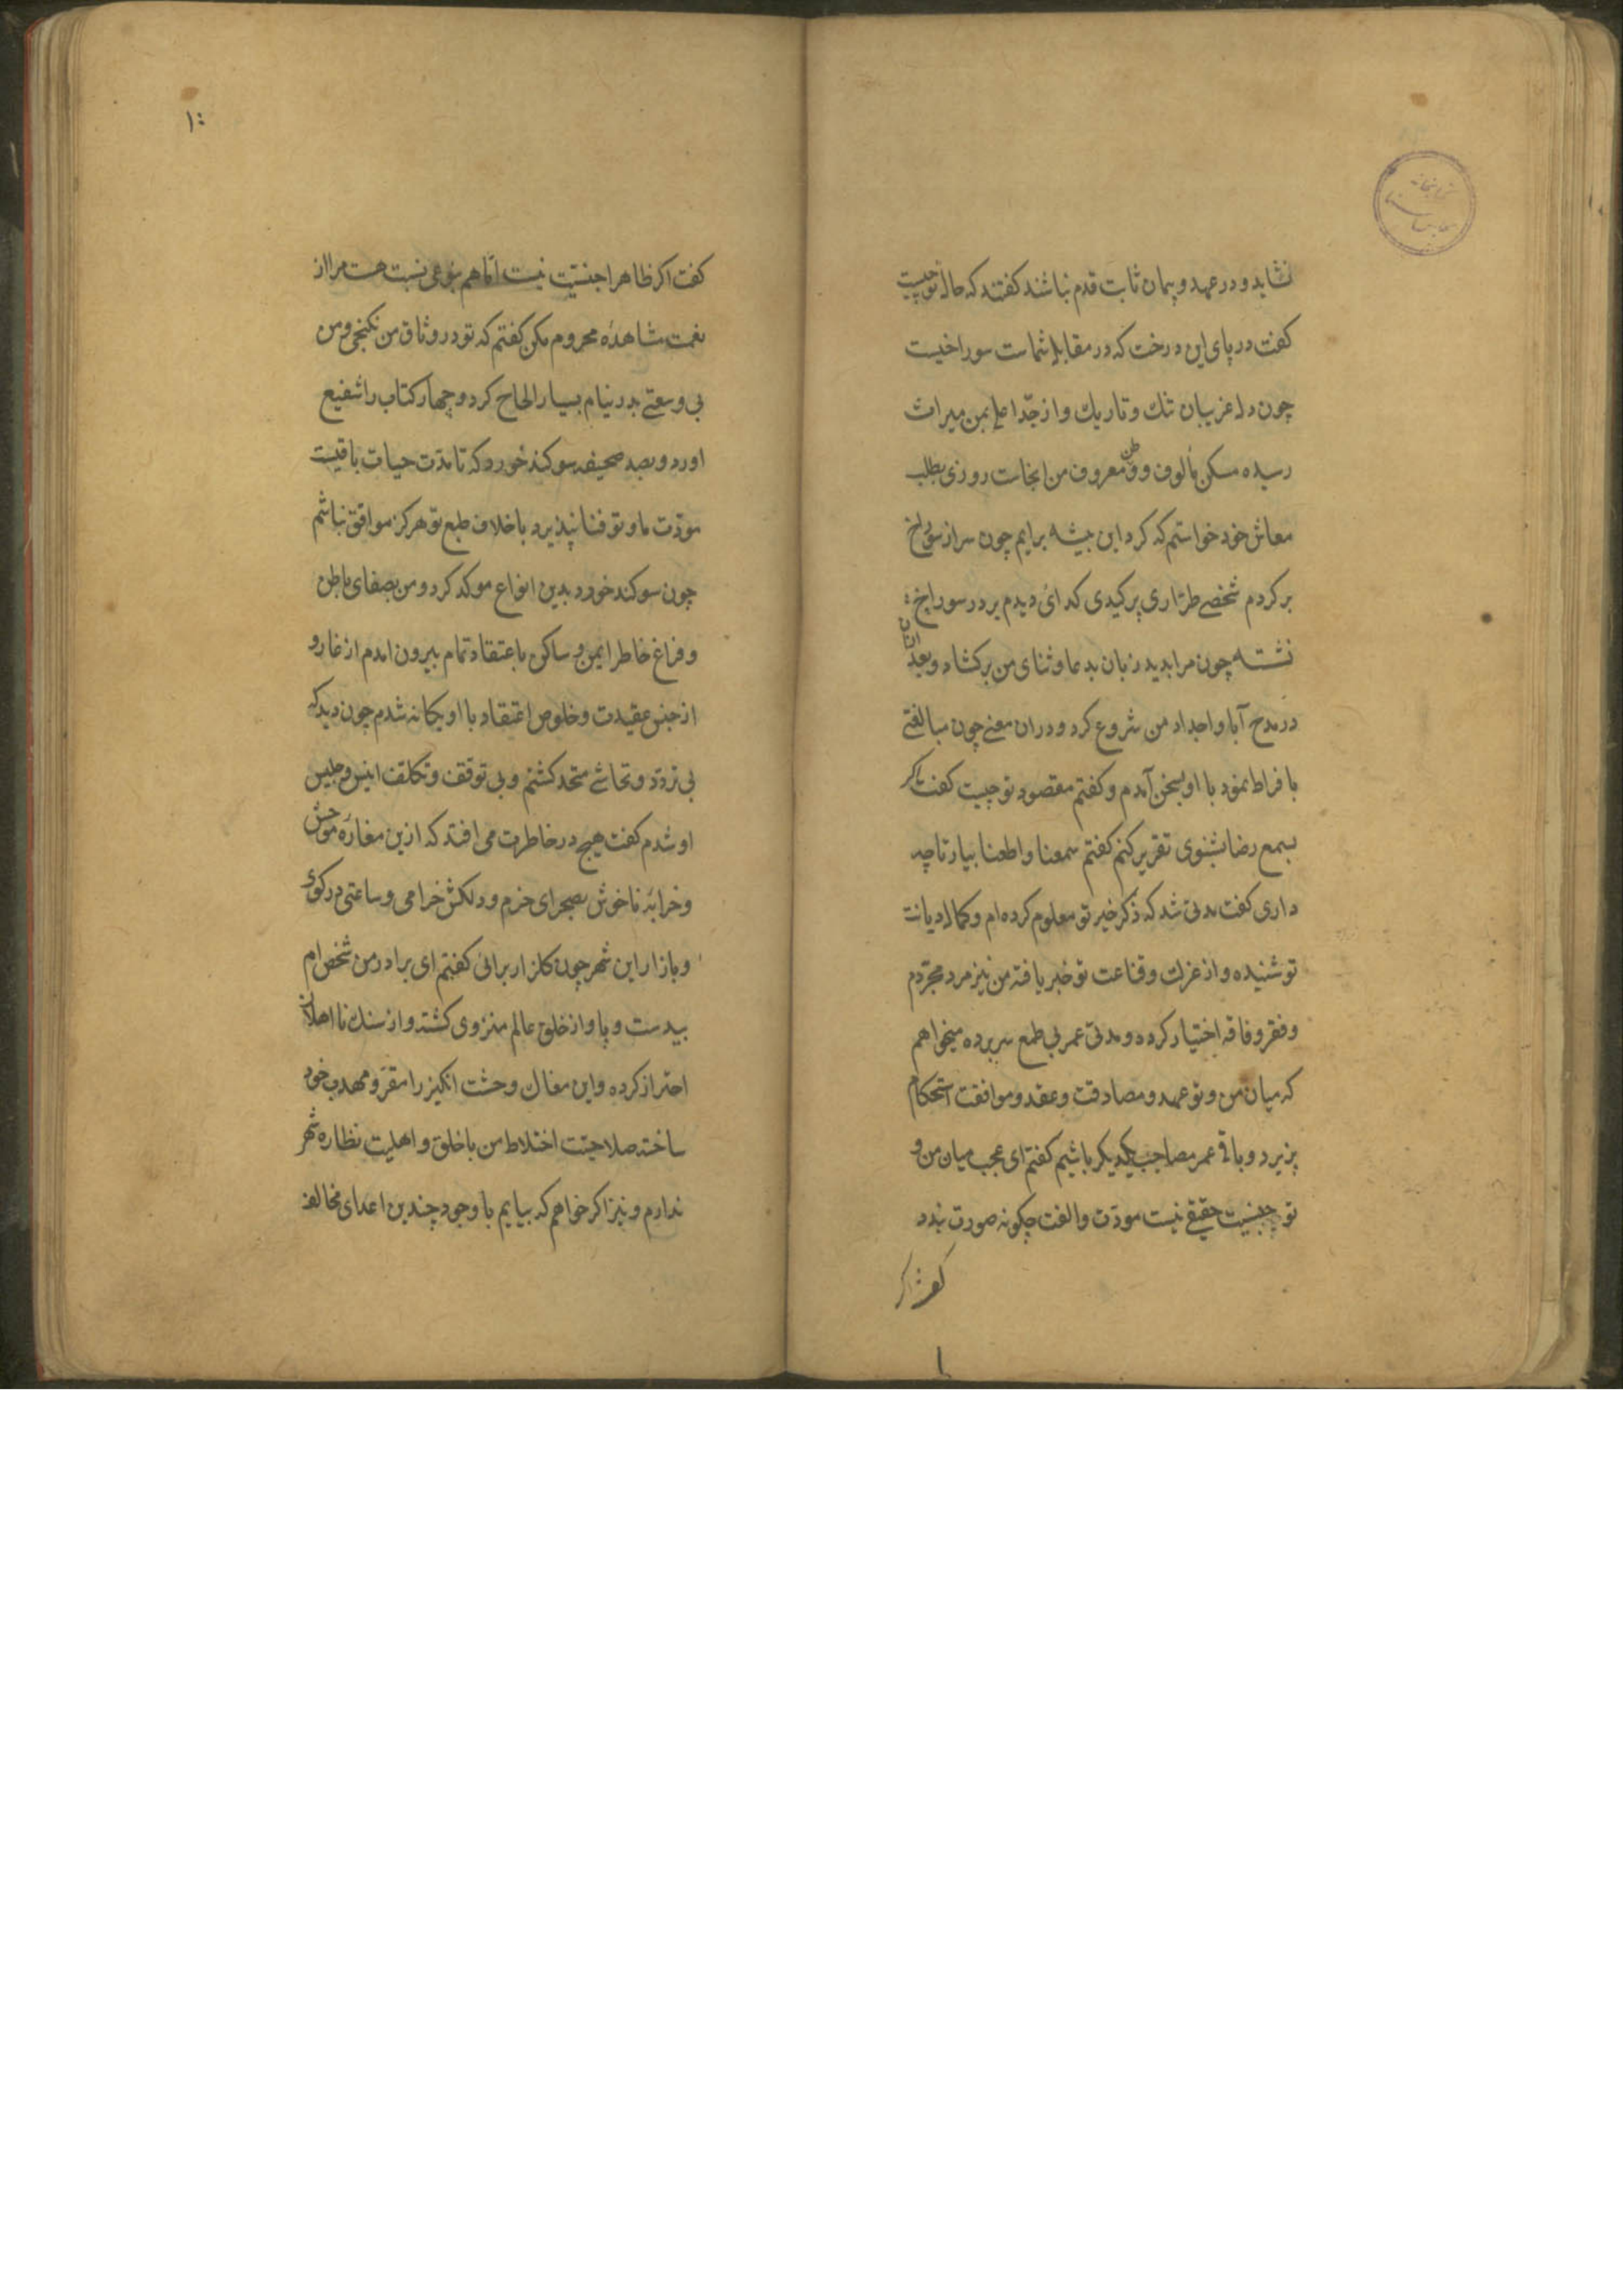 نشاید و در عهد و پیمان ثابت قدم نباشند کفتند که حال تو چیست
کفت در پای این درخت که در مقابله شماست سوراخیست
چون دل غریبان تنك و تاریك و از جدّ اعلی بمن میراث
رسیده مسکن مألوف و وطن معروف من انجاست روزی بطلب
معاش خود خواستم که کرد این بیشه برایم چون سر از سوراخ
بر کردم شخصی طرّاری پر کیدی کدائی دیدم بر در سوراخ
نشسته چون مرا بدید زبان بدعا و ثنای من برکشاد و بعد ازان
در مدح آبا و اجداد من شروع کرد و دران معنی چون مبالغتی
با فراط نمود با او بسخن آمدم و کفتم مقصود تو چیست کفت اکر
بسمع رضا بشنوی تقریر کنم کفتم سمعنا و اطعنا بیار تا چه
داری کفت مدتی شد که ذکر خیر تو معلوم کرده ام و کمال دیانت
تو شنیده و از عزلت و قناعت تو خبر یافته من نیز مرد مجرّدم
و فقر و فاقه اختیار کرده و مدتی عمر بی طمع سر برده میخواهم
که میان من و تو عهد و مصادقت و عقد و موافقت استحکام
پزیرد و باقی عمر مصاحب یکدیکر باشیم کفتم ای عجب میان من و
تو جنسیت حقیقی نیست مودّت و الفت چکونه صورت بندد
کفت اکر
کفت اکر ظاهرا جنسیّت نیست امّا هم بنوعی نسبت هست مرا از
نعمت مشاهده محروم مکن کفتم که تو در وثاق من نکنجی و من
بی وسعتی بدر نیام بسیار الحاح کرد و چهار کتاب را شفیع
اورد و بصد صحیفه سوکند خورد که تا مدّت حیات باقیست
مودّت ما و تو فنا نپذیرد با خلاف طبع تو هرکز موافق نباشم
چون سوکند خورد بدین انواع موکد کرد و من بصفای باطن
و فراغ خاطر ایمن و ساکن با عتقاد تمام بیرون امدم از غار و
از جنس عقیدت و خلوص اعتقاد با او یکانه شدم چون دید که
بی تردّد و تحاشی متحد کشتم و بی توقف و تکلف انیس و جلیس
او شدم کفت هیچ در خاطرت می افتد که ازین مغاره موحش
و خرابه ناخوش بصحرای خرم و دلکش خرامی و ساعتی در کوی
و بازار این شهر چون کلزار برائی کفتم ای برادر من شخص ام
بیدست و پا و از خلق عالم منزوی کشته و از سنك نا اهلان
احتراز کرده و این مغاك وحشت انکیز را مقرّ و مهدب خود
ساخته صلاحیّت اختلاط من با خلق و اهلیت نظاره شهر
ندارم و نیز اکر خواهم که بیایم با وجود چندین اعدای مخالف